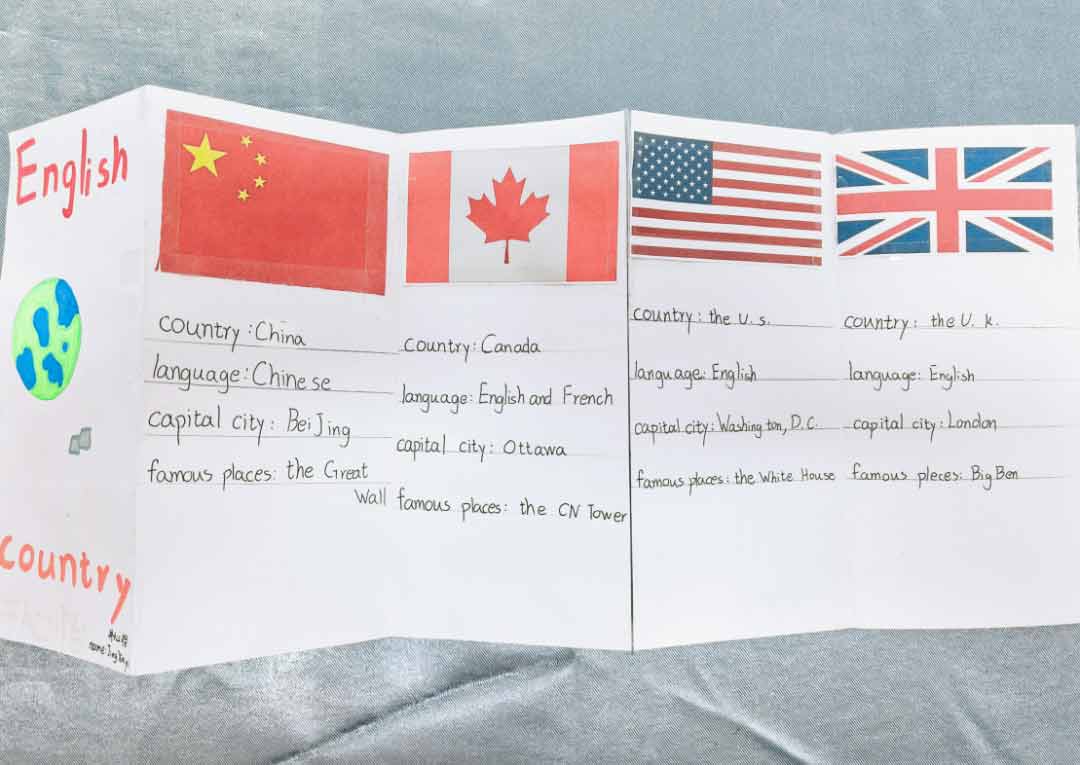 English
country
country: China
language: Chinese
capital city: BeiJing
famous places: the Great
Wall
country: Canada
language: English and French
capital city: Ottawa
famous places: the CN Tower
country: the U. s.
language: English
capital city: Washington, D.C.
famous places: the White House
country: the U. k.
language: English
capital city: London
famous pleces: Big Ben